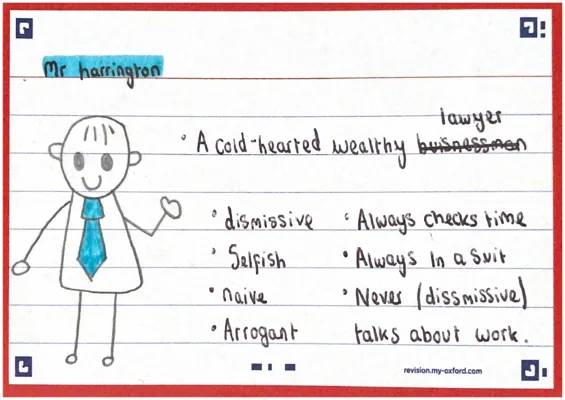 Mr harrington
lawyer
• A cold-hearted wealthy buisnessman
• dismissive • Always checks time
• Selfish • Always in a suit
• naive • Never (dissmissive)
• Arrogant talks about work.
revision.my-oxford.com